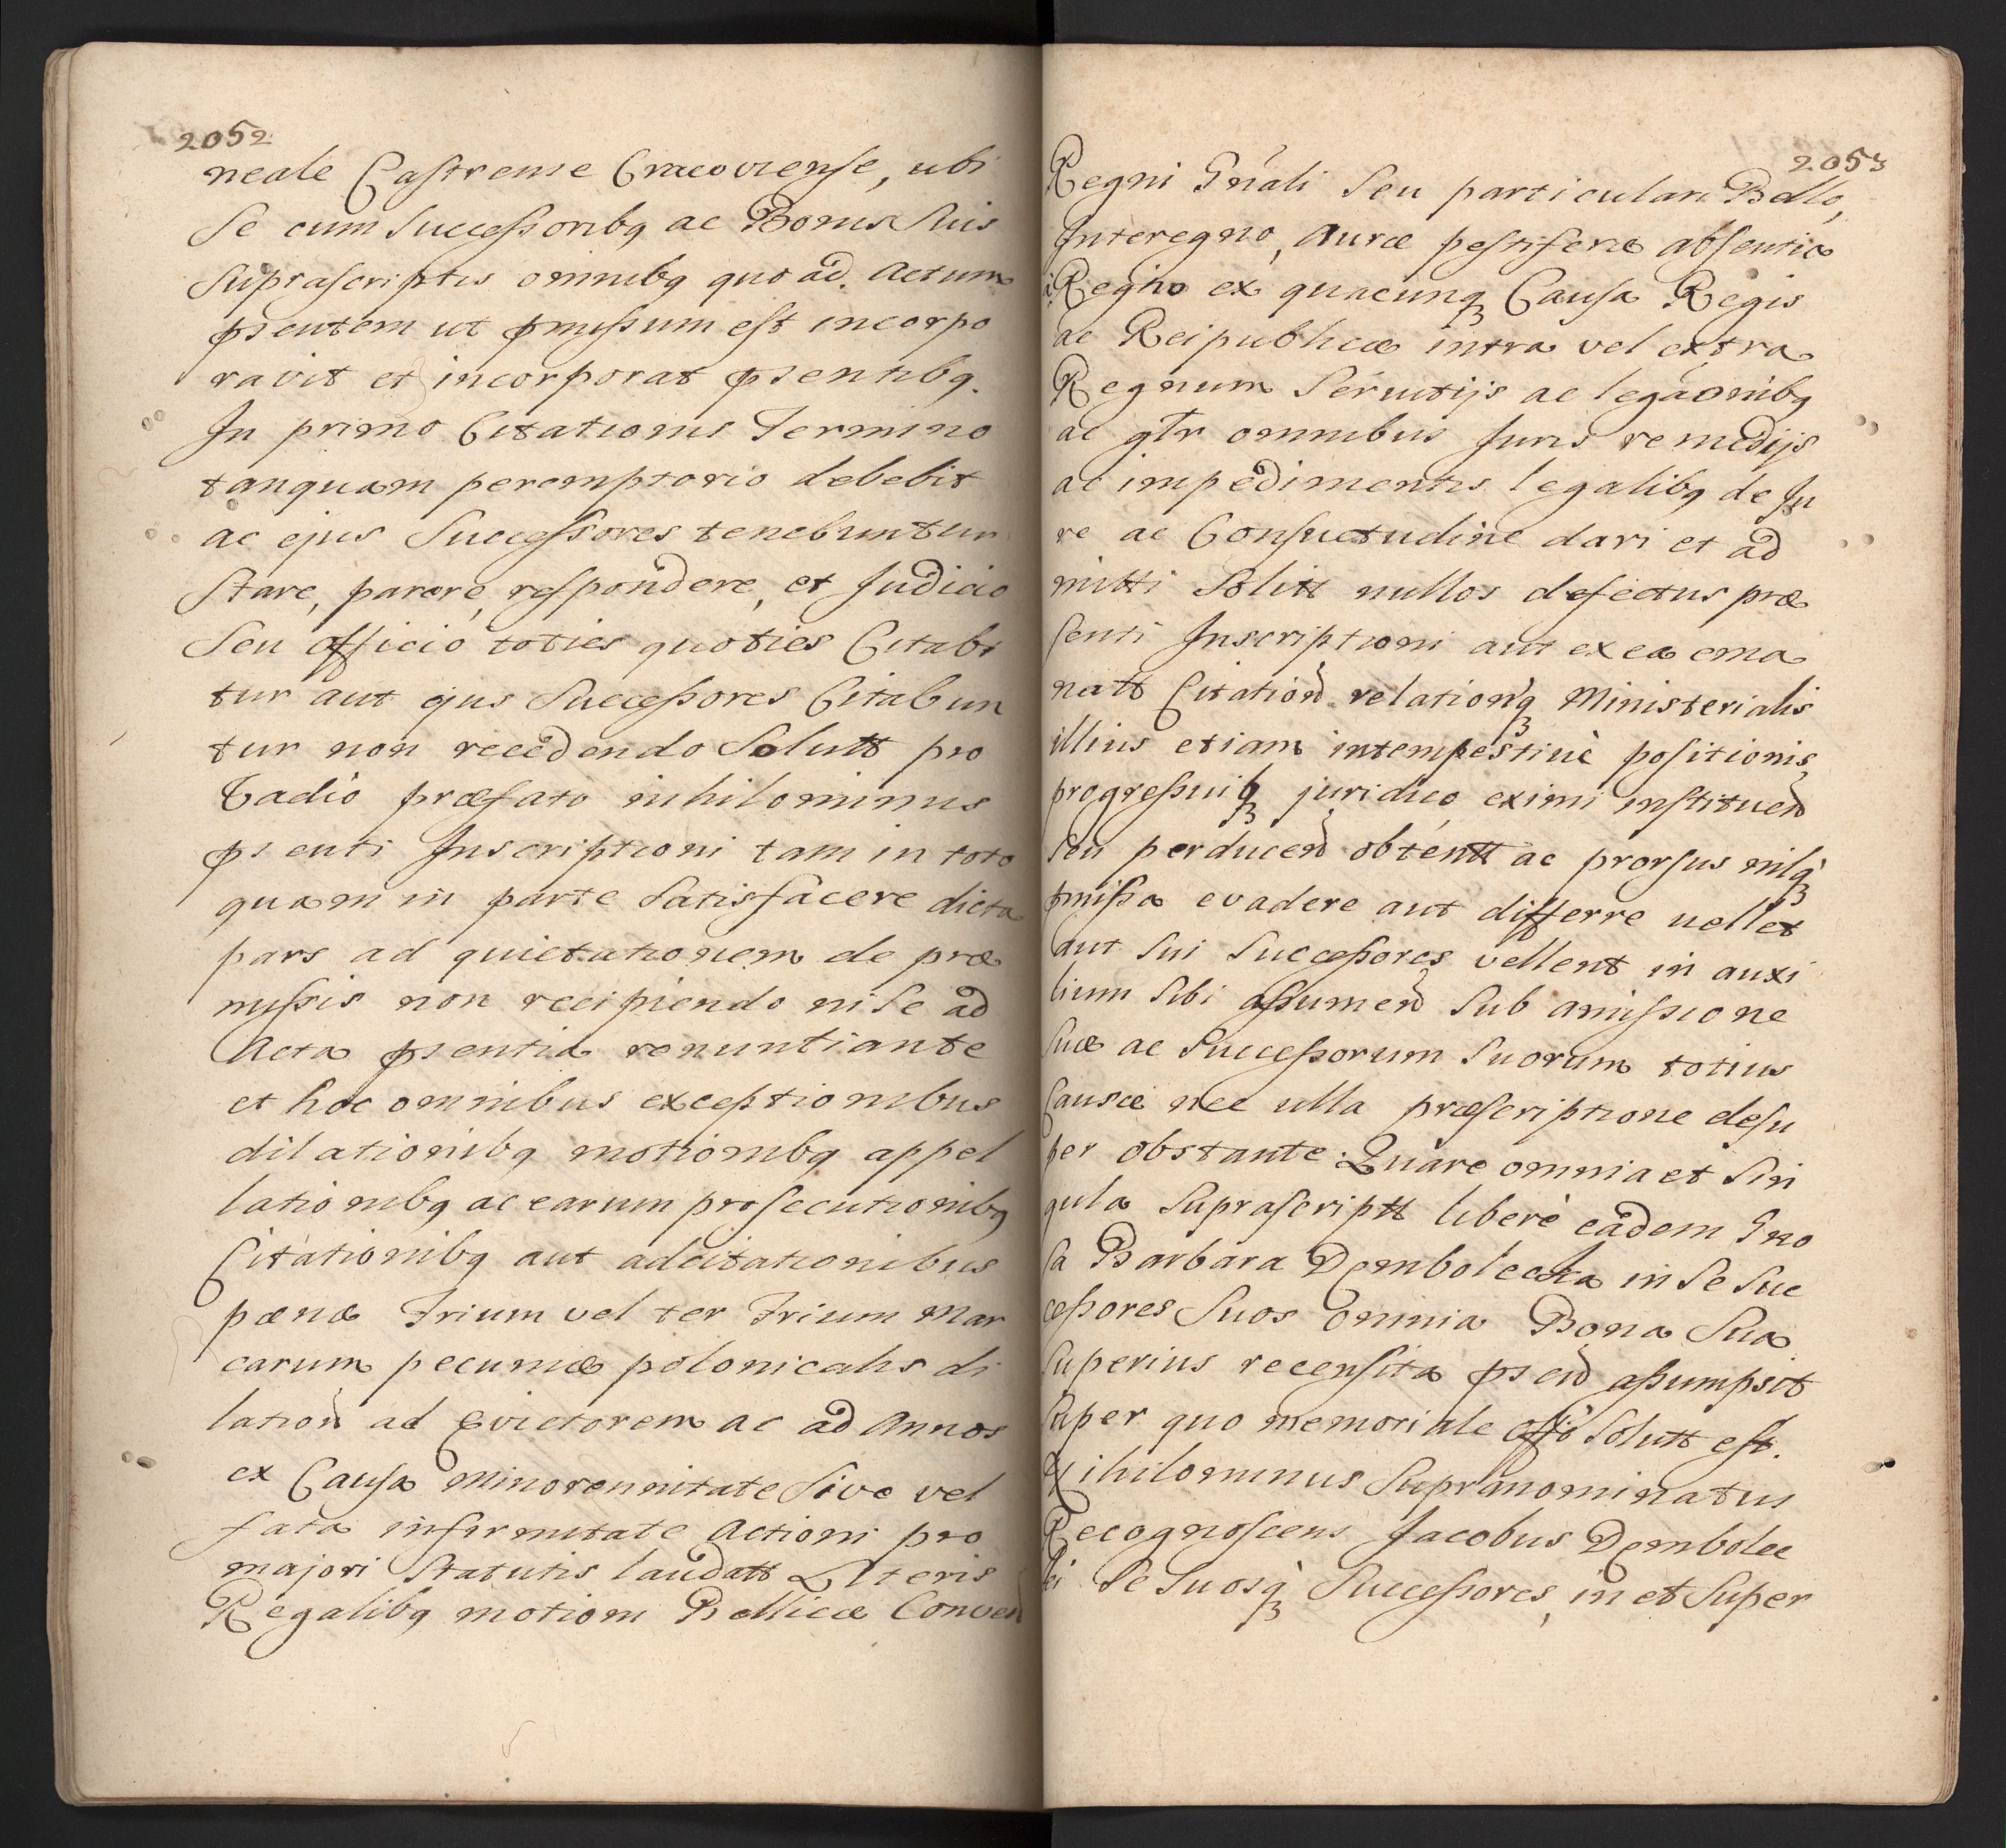 2052
neale Castrense Cracoviense, ubi
se cum Successoribq ac Bonis Suis
Suprascriptis omnibq quo ad Actum
pñsentem ut pmissum est incorpo
ravit et incorporat pñsentibq.
In primo Citationis Termino
tanquam peremptorio debebit
ac ejus Successores tenebuntur
Stare, parere, respondere, et Judicio
Seu officio toties quoties Citabi
tur aut ejus Successores Citabun
tur non recedendo Solutt pro
Vadio præfato nihilominus
pñsenti Inscriptioni tam in toto
quam in parte Satisfacere dicta
pars ad quietationem de præ
missis non recipiendo ni Se ad
Acta pñsentia renuntiante
et hoc omnibus exceptionibus
dilationibq motionibq appel
lationibq ac earum prosecutionibq
Citationibq aut adcitationibus
pænæ Trium vel ter Trium Mar
carum pecuniæ polonicalis di
lation ad Evictorem ac ad Annos
ex Causa Minorennitate Sive vel
fata infirmitate Actioni pro
majori Statutis laudatt Literis
Regalibq motioni Bellicæ Conven
2053
Regni Gnali Seu particulari Bello,
Interegno, Auræ pestiferæ absentia
Regno ex quacunq Causa Regis
ac Reipublicæ intra vel extra
Regnum Servitijs ac legaõnibq
ac gtr omnibus Juris remedijs
ac impedimentis legalibq de Ju
re ac Consuetudine dari et ad
mitti Solitt nullos defectus præ
senti Inscriptioni aut ex ea ema
natt Citation relationq Ministerialis
illius etiam intempestivè positionis
progressuiq juridico eximi instituen
seu perducen obtentt ac prorsus nilq
pmissa evadere aut differre vellet
aut Sui Successores vellent in auxi
lium Sibi assumen Sub amissione
suæ ac Successorum Suorum totius
Causæ nec ulla præscriptione desu
per obstante. Quare omnia et Sin
gula Suprascriptt liberè eadem Gno
sa Barbara Dembolecka in Se Suc
cessores Suos omnia Bona Sua
Superius recensita pñsen assumpsit
Super quo memoriale offo Solutt est.
Nihilominus Supranominatus
Recognoscens Jacobus Dembolec
ki Se Suosq Successores, in et Super